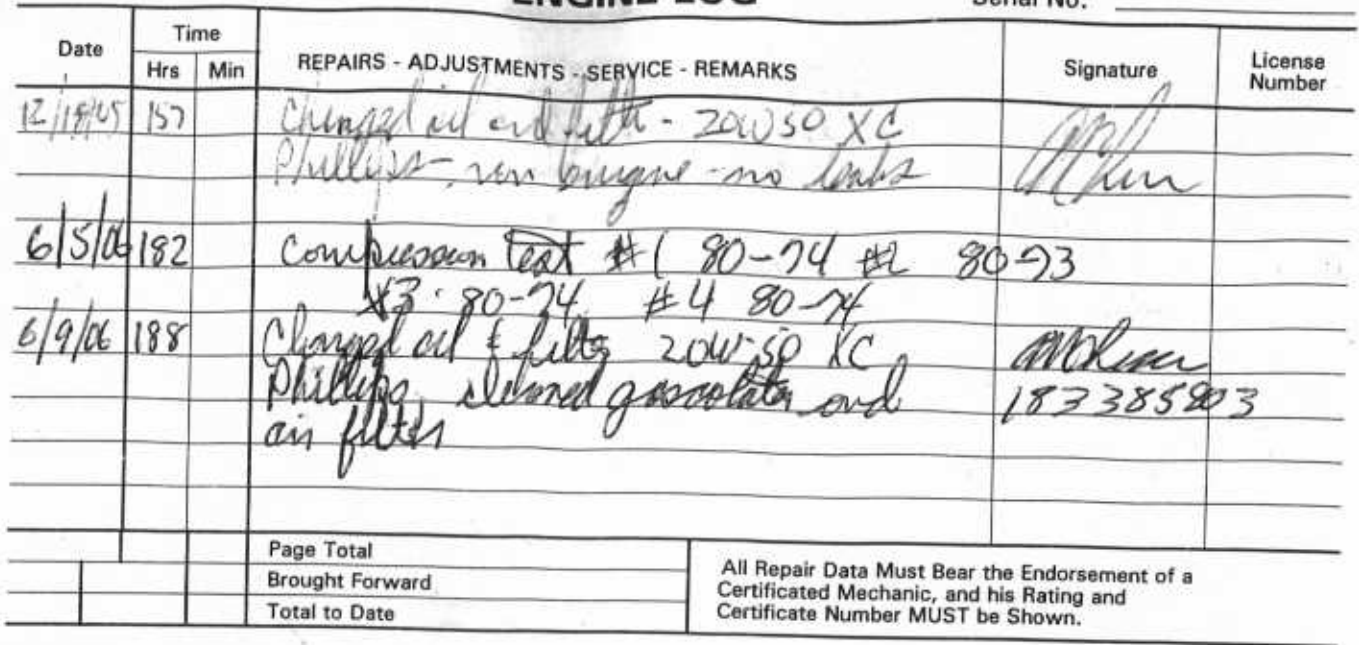 ENGINE LOG Serial No.
Date Time REPAIRS - ADJUSTMENTS - SERVICE - REMARKS Signature License Number
Hrs Min
157 Changed oil and filter - 20W50 XC
Phillips - run engine - no leaks
6/5/06 182 Compression test #1 80-74 #2 80-73
#3 - 80-74 #4 80-74
6/9/06 188 Changed oil & filter 20W-50 XC
Phillips, cleaned gascolator and
air filter
Page Total
Brought Forward
Total to Date
All Repair Data Must Bear the Endorsement of a
Certificated Mechanic, and his Rating and
Certificate Number MUST be Shown.